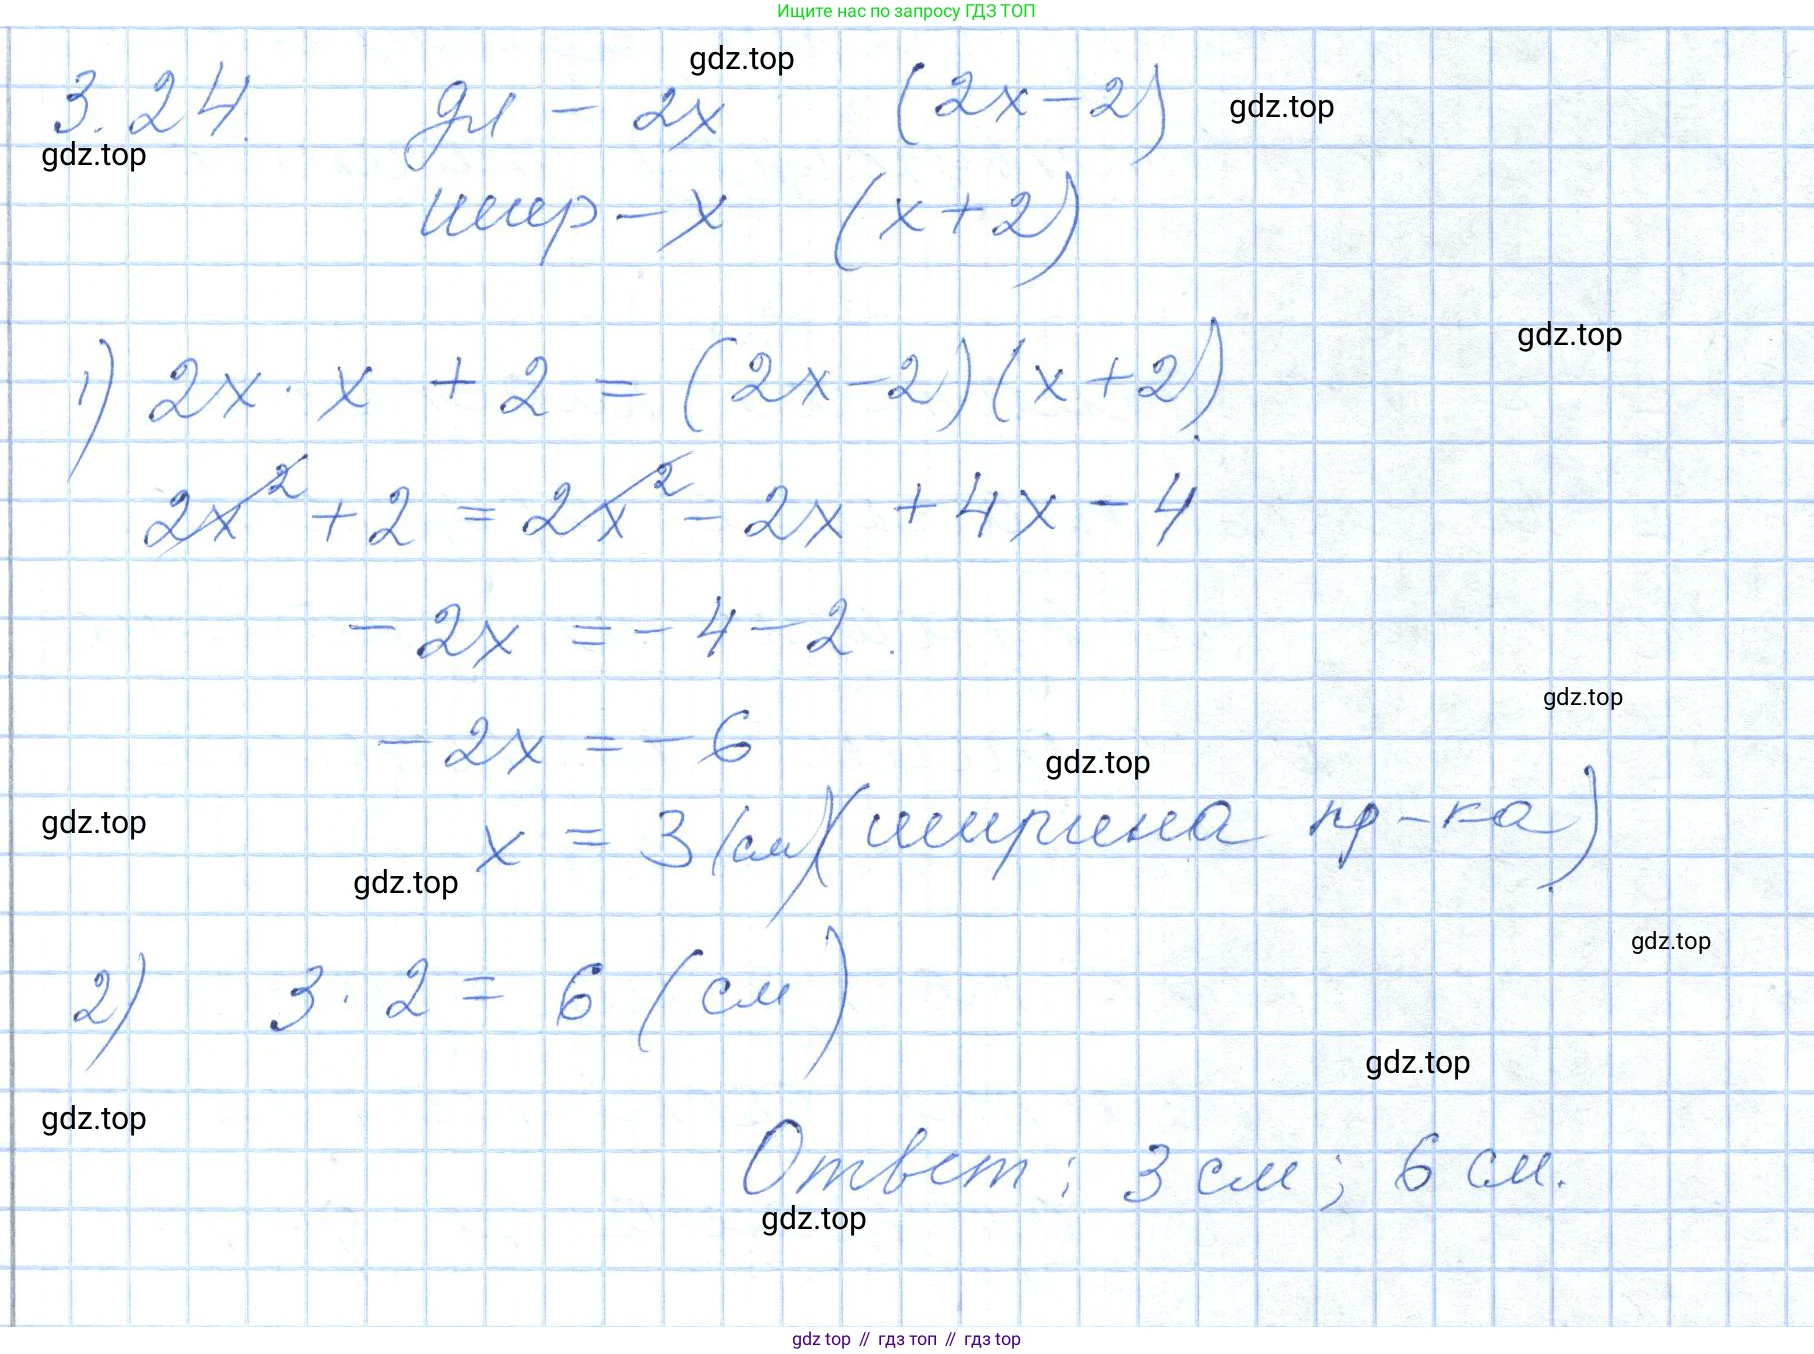 Ищите нас по запросу ГДЗ ТОП
gdz.top
3.24. дл – 2x (2x – 2) gdz.top
gdz.top
шир – x (x + 2)
gdz.top
1) 2x · x + 2 = (2x – 2)(x + 2)
2x² + 2 = 2x² – 2x + 4x – 4
– 2x = – 4 – 2.
gdz.top
– 2x = – 6
gdz.top
gdz.top
x = 3 (см) (ширина пр-ка)
gdz.top
gdz.top
2) 3 · 2 = 6 (см)
gdz.top
gdz.top
Ответ: 3 см; 6 см.
gdz.top
gdz top // гдз топ // гдз top